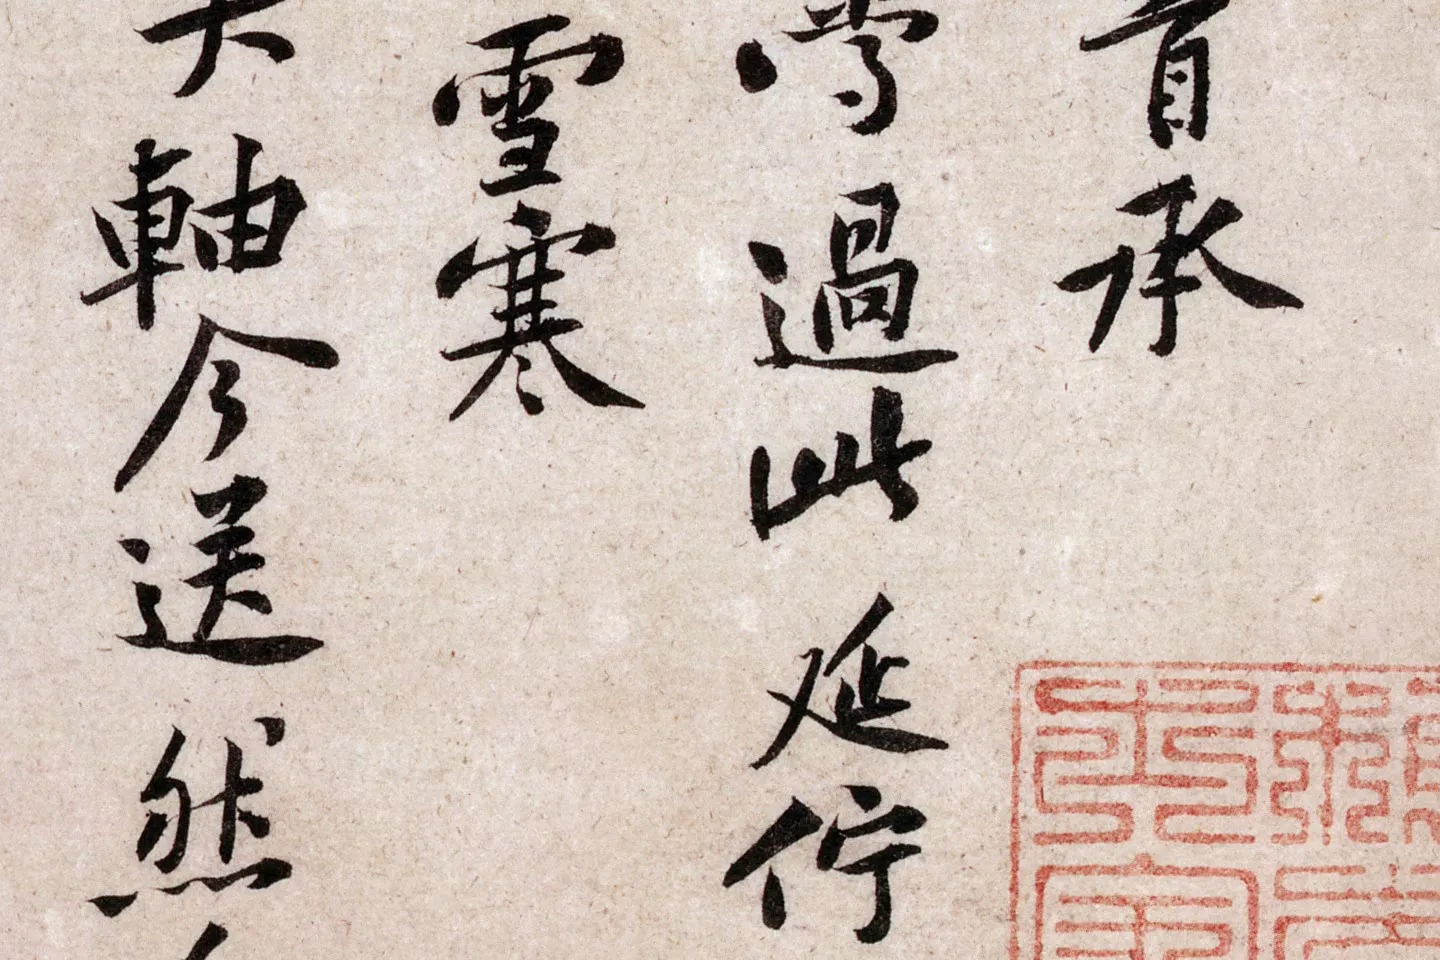 首承
過此延佇
雪寒
大軸今送然